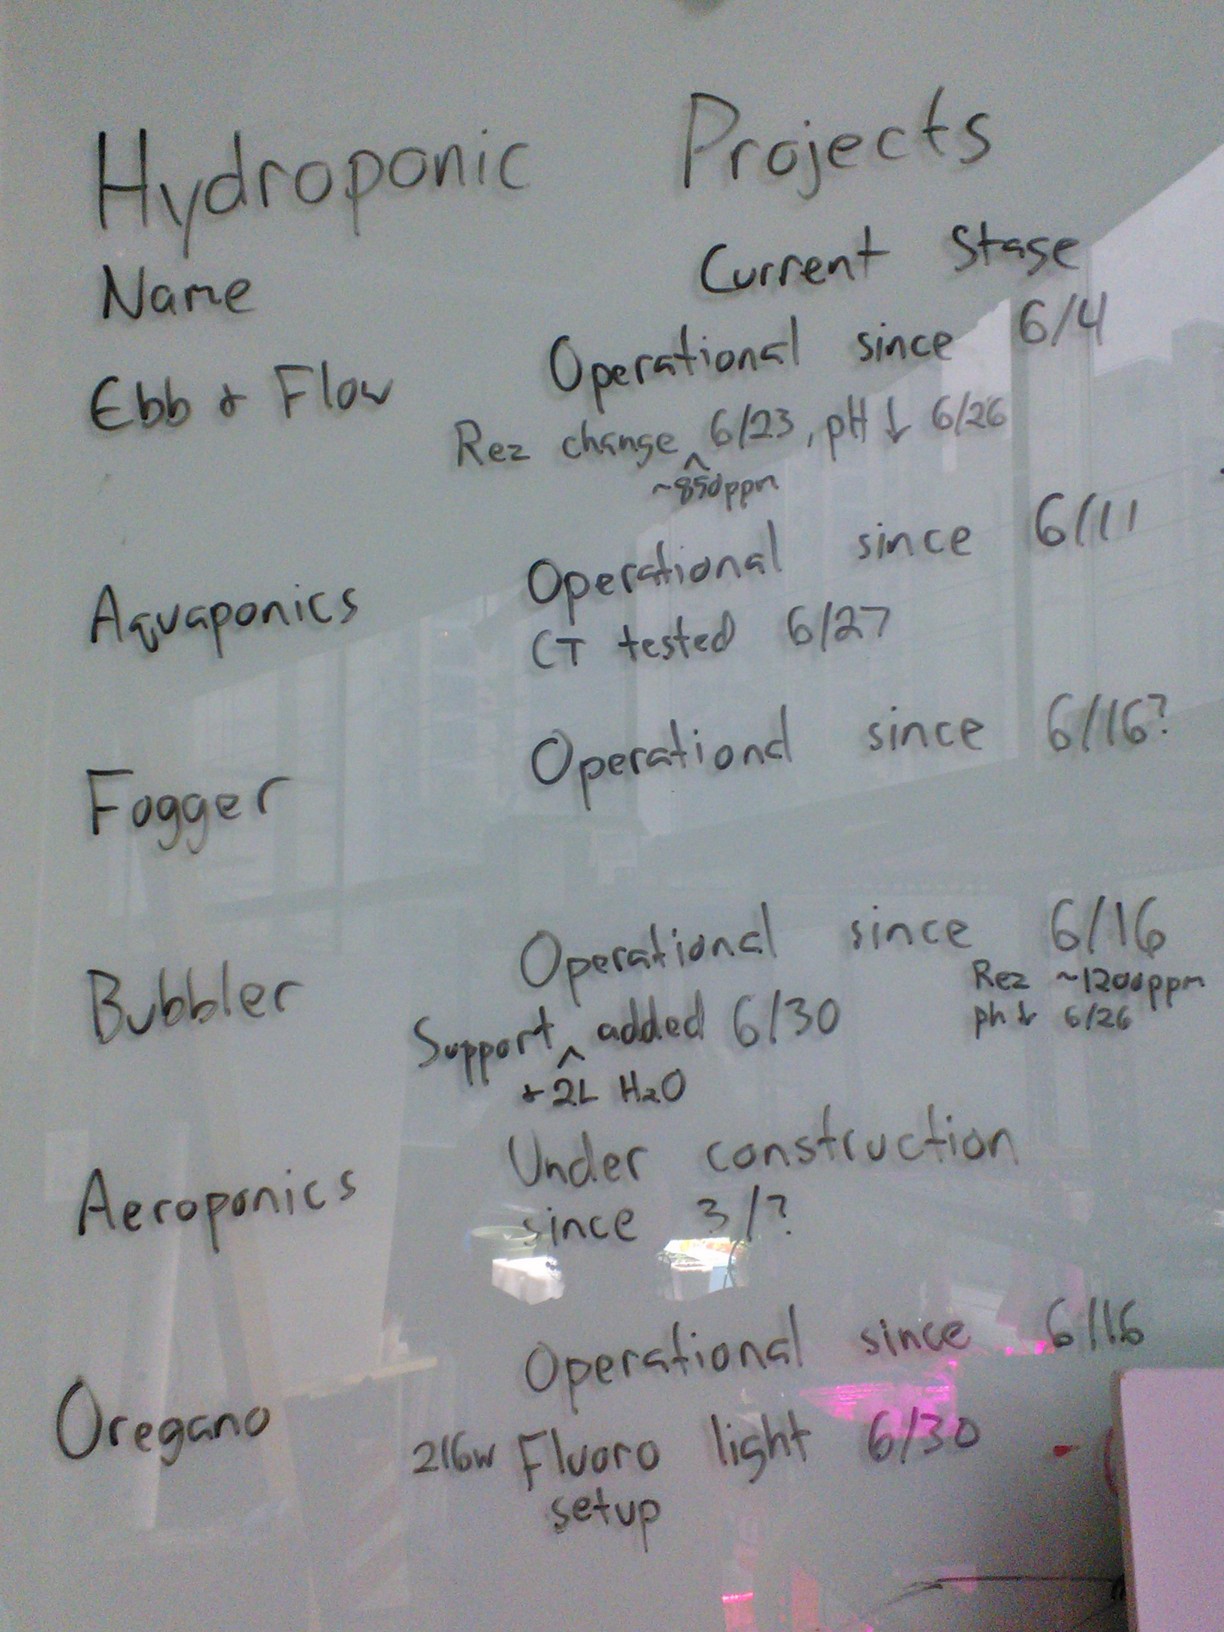 Hydroponic Projects
Name Current Stage
Ebb & Flow Operational since 6/4
Rez change ^ 6/23, pH ↓ 6/26
~850ppm
Aquaponics Operational since 6/11
CT tested 6/27
Fogger Operational since 6/16?
Bubbler Operational since 6/16
Rez ~1200ppm
ph ↓ 6/26
Support ^ added 6/30
& 2L H2O
Aeroponics Under construction
since 3/?
Oregano Operational since 6/16
216w Fluoro light 6/30
setup